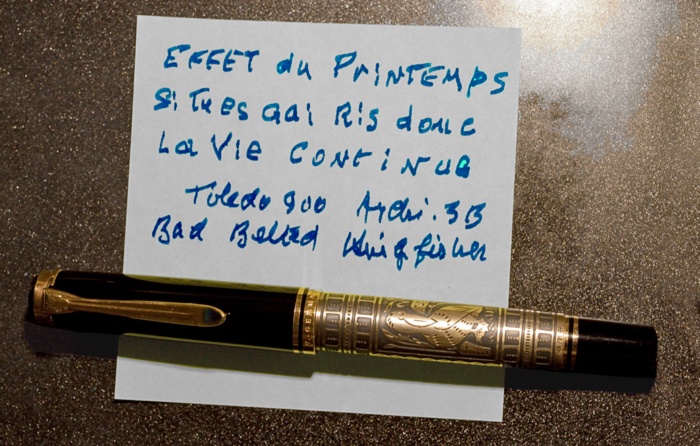 EFFET du PRINTEMPS
Si Tu es gai Ris donc
La Vie CONTINUE
Toledo 900 Archi. 3B
Bad Belted Kingfisher